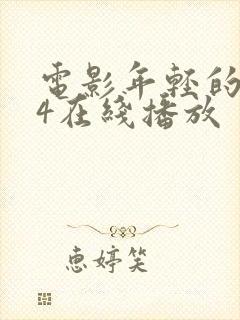 電影年輕的
4在綫播放
惠婷笑